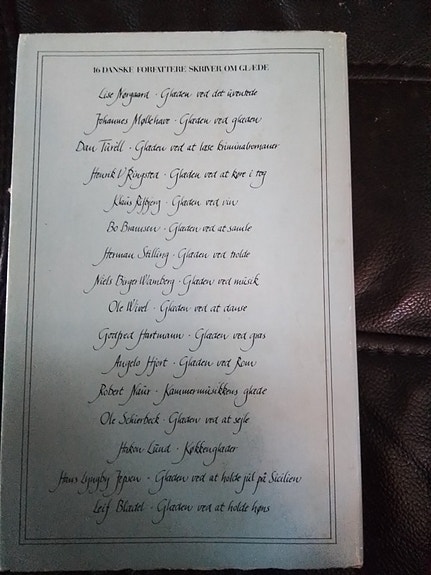 16 DANSKE FORFATTERE SKRIVER OM GLÆDE
Lise Nørgaard · Glæden ved det uventede
Johannes Møllehave · Glæden ved glæden
Dan Turèll · Glæden ved at læse kriminalromaner
Henrik V. Ringsted · Glæden ved at køre i tog
Klaus Rifbjerg · Glæden ved vin
Bo Bramsen · Glæden ved at samle
Herman Stilling · Glæden ved trolde
Niels Birger Wamberg · Glæden ved musik
Ole Wivel · Glæden ved at danse
Godfred Hartmann · Glæden ved græs
Angelo Hjort · Glæden ved Rom
Robert Naur · Kammermusikkens glæde
Ole Schierbeck · Glæden ved at sejle
Hakon Lund · Køkkenglæder
Hans Lyngby Jepsen · Glæden ved at holde jul på Sicilien
Leif Blædel · Glæden ved at holde høns